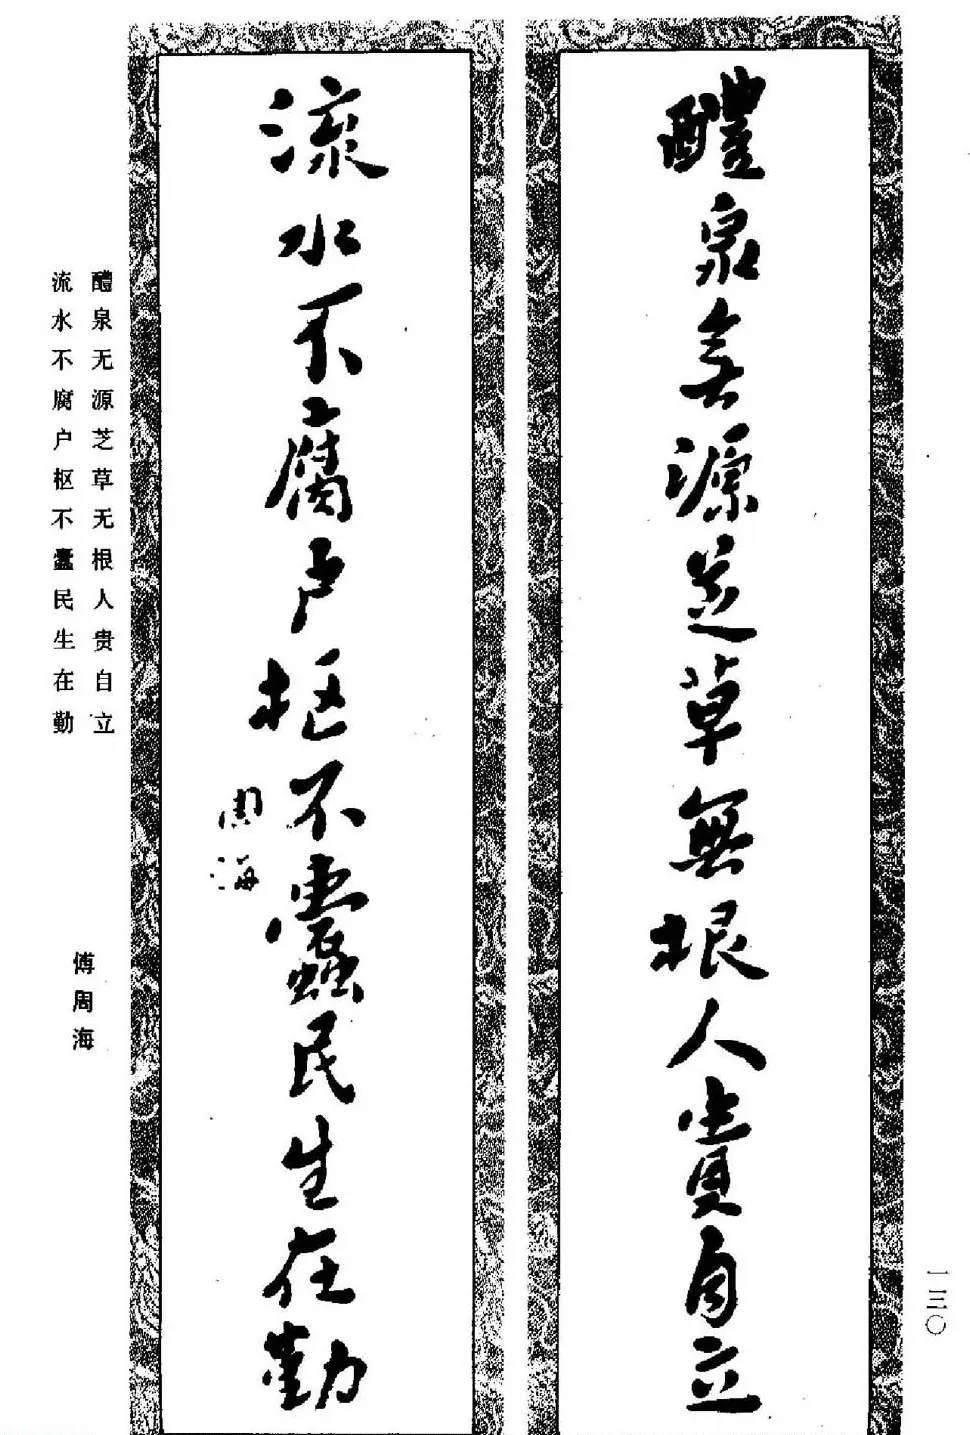 醴泉無源芝草無根人貴自立
流水不腐户枢不蠹民生在勤
周海
醴泉无源芝草无根人贵自立
流水不腐户枢不蠹民生在勤
傅周海
一三〇